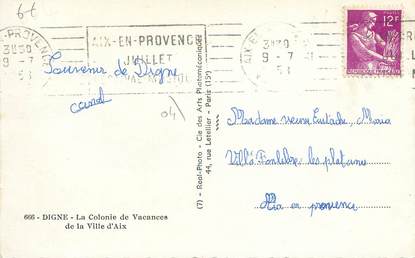 6€
X-PROVENCE
AIX-EN-PROVENCE
JUILLET
3H30
9 - 7
53
AIX-EN
3H30
9 - 7
12F
Souvenir de Digne
04
Madame veuve Eustache, Maria
Villa les platanes
Aix en provence
666 - DIGNE - La Colonie de Vacances
de la Ville d'Aix
(7) - Real-Photo - Cie des Arts Photomécaniques
44, rue Letellier - Paris (15e)